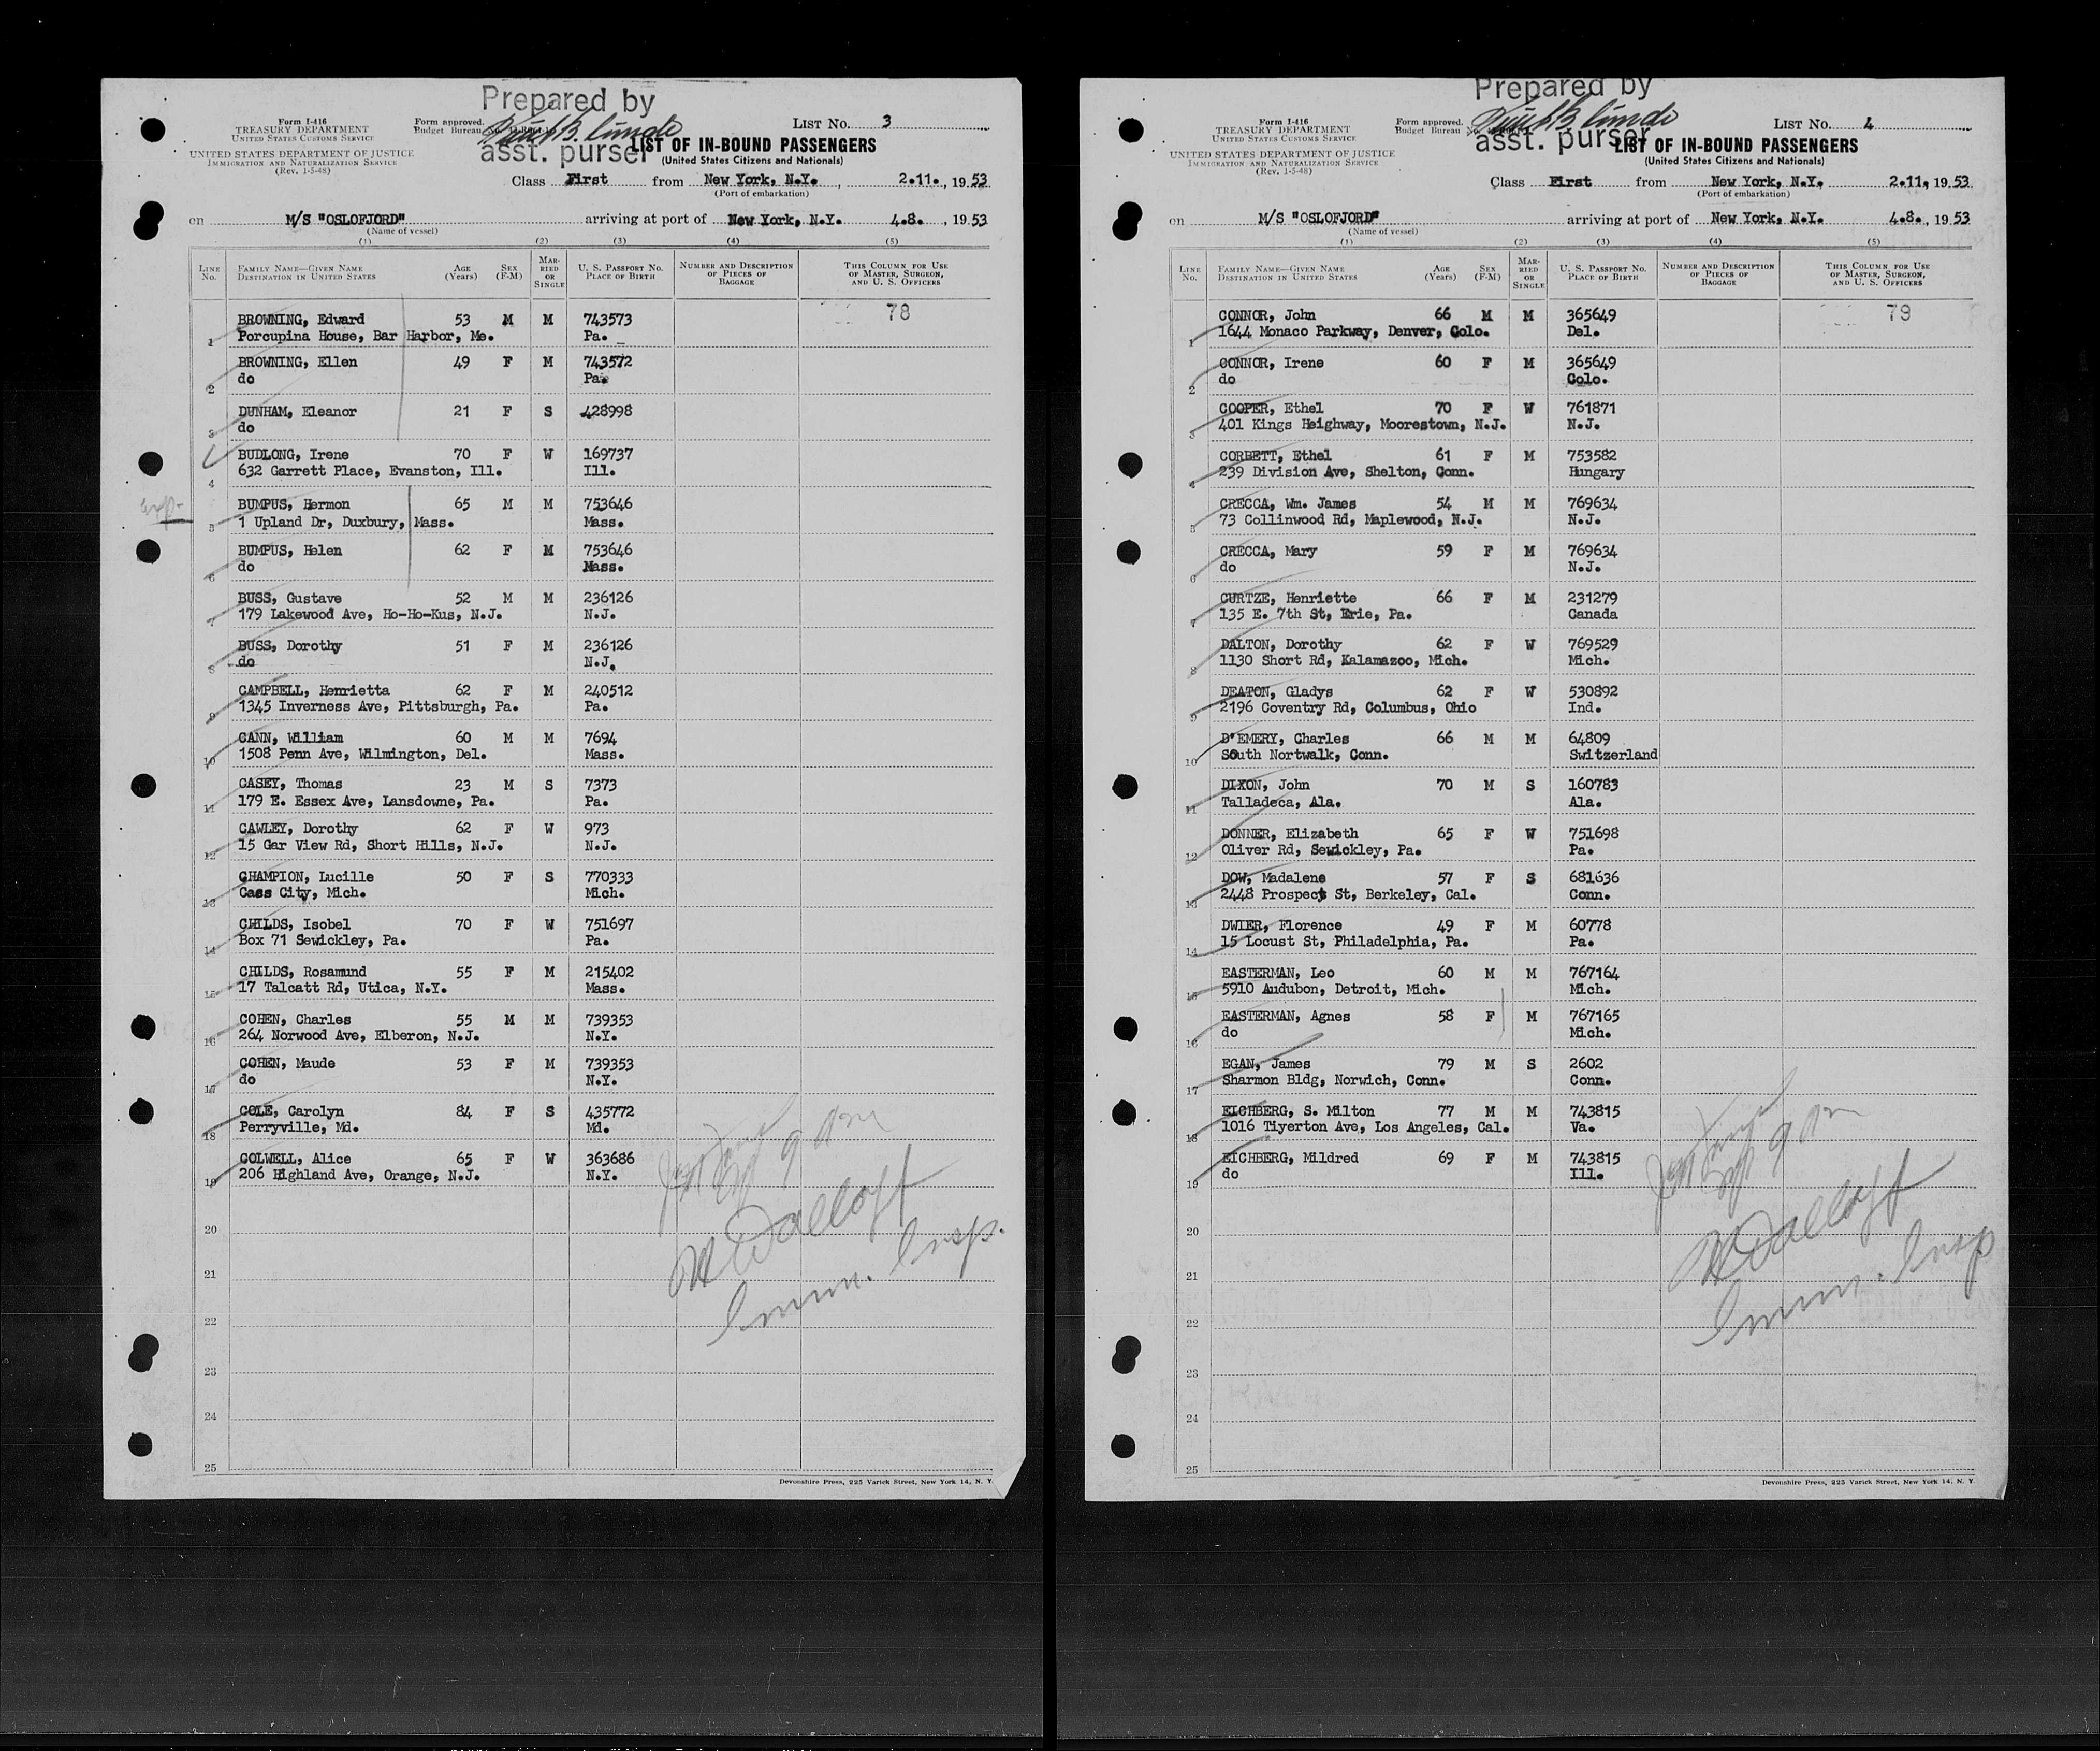 Prepared by
Form I-416
TREASURY DEPARTMENT
UNITED STATES CUSTOMS SERVICE
UNITED STATES DEPARTMENT OF JUSTICE
IMMIGRATION AND NATURALIZATION SERVICE
(Rev. 1-5-48)
Form approved.
Budget Bureau
asst. purser
LIST No. 3
LIST OF IN-BOUND PASSENGERS
(United States Citizens and Nationals)
Class First from New York, N.Y., 2.11., 1953
(Port of embarkation)
on M/S "OSLOFJORD" arriving at port of New York, N.Y. 4.8., 1953
(Name of vessel)
(1) (2) (3) (4) (5)
LINE NO. FAMILY NAME—GIVEN NAME DESTINATION IN UNITED STATES AGE (Years) SEX (F-M) MARRIED OR SINGLE U. S. PASSPORT NO. PLACE OF BIRTH NUMBER AND DESCRIPTION OF PIECES OF BAGGAGE THIS COLUMN FOR USE OF MASTER, SURGEON, AND U. S. OFFICERS
78
BROWNING, Edward 53 M M 743573
1 Porcupina House, Bar Harbor, Me. Pa.
BROWNING, Ellen 49 F M 743572
2 do Pa.
DUNHAM, Eleanor 21 F S 428998
3 do
BUDLONG, Irene 70 F W 169737
4 632 Garrett Place, Evanston, Ill. Ill.
BUMPUS, Hermon 65 M M 753646
5 1 Upland Dr, Duxbury, Mass. Mass.
BUMPUS, Helen 62 F M 753646
6 do Mass.
BUSS, Gustave 52 M M 236126
7 179 Lakewood Ave, Ho-Ho-Kus, N.J. N.J.
BUSS, Dorothy 51 F M 236126
8 do N.J.
CAMPBELL, Henrietta 62 F M 240512
9 1345 Inverness Ave, Pittsburgh, Pa. Pa.
CANN, William 60 M M 7694
10 1508 Penn Ave, Wilmington, Del. Mass.
CASEY, Thomas 23 M S 7373
11 179 E. Essex Ave, Lansdowne, Pa. Pa.
CAWLEY, Dorothy 62 F W 973
12 15 Gar View Rd, Short Hills, N.J. N.J.
CHAMPION, Lucille 50 F S 770333
13 Cass City, Mich. Mich.
CHILDS, Isobel 70 F W 751697
14 Box 71 Sewickley, Pa. Pa.
CHILDS, Rosamund 55 F M 215402
15 17 Talcatt Rd, Utica, N.Y. Mass.
COHEN, Charles 55 M M 739353
16 264 Norwood Ave, Elberon, N.J. N.Y.
COHEN, Maude 53 F M 739353
17 do N.Y.
COLE, Carolyn 84 F S 435772
18 Perryville, Md. Md.
COLWELL, Alice 65 F W 363686
19 206 Highland Ave, Orange, N.J. N.Y.
20
21
Imm. Insp.
22
23
24
25
Devonshire Press, 225 Varick Street, New York 14, N. Y.
Prepared by
Form I-416
TREASURY DEPARTMENT
UNITED STATES CUSTOMS SERVICE
UNITED STATES DEPARTMENT OF JUSTICE
IMMIGRATION AND NATURALIZATION SERVICE
(Rev. 1-5-48)
Form approved.
Budget Bureau
asst. purser
LIST No. 4
LIST OF IN-BOUND PASSENGERS
(United States Citizens and Nationals)
Class First from New York, N.Y. 2.11, 1953
(Port of embarkation)
on M/S "OSLOFJORD" arriving at port of New York, N.Y. 4.8., 1953
(Name of vessel)
(1) (2) (3) (4) (5)
LINE NO. FAMILY NAME—GIVEN NAME DESTINATION IN UNITED STATES AGE (Years) SEX (F-M) MARRIED OR SINGLE U. S. PASSPORT NO. PLACE OF BIRTH NUMBER AND DESCRIPTION OF PIECES OF BAGGAGE THIS COLUMN FOR USE OF MASTER, SURGEON, AND U. S. OFFICERS
79
CONNOR, John 66 M M 365649
1 1644 Monaco Parkway, Denver, Colo. Del.
CONNOR, Irene 60 F M 365649
2 do Colo.
COOPER, Ethel 70 F W 761871
3 401 Kings Heighway, Moorestown, N.J. N.J.
CORBETT, Ethel 61 F M 753582
4 239 Division Ave, Shelton, Conn. Hungary
CRECCA, Wm. James 54 M M 769634
5 73 Collinwood Rd, Maplewood, N.J. N.J.
CRECCA, Mary 59 F M 769634
6 do N.J.
CURTZE, Henriette 66 F M 231279
7 135 E. 7th St, Erie, Pa. Canada
DALTON, Dorothy 62 F W 769529
8 1130 Short Rd, Kalamazoo, Mich. Mich.
DEATON, Gladys 62 F W 530892
9 2196 Coventry Rd, Columbus, Ohio Ind.
D'EMERY, Charles 66 M M 64809
10 South Nortwalk, Conn. Switzerland
DIXON, John 70 M S 160783
11 Talladeca, Ala. Ala.
DONNER, Elizabeth 65 F W 751698
12 Oliver Rd, Sewickley, Pa. Pa.
DOW, Madalene 57 F S 681636
13 2448 Prospect St, Berkeley, Cal. Conn.
DWIER, Florence 49 F M 60778
14 15 Locust St, Philadelphia, Pa. Pa.
EASTERMAN, Leo 60 M M 767164
15 5910 Audubon, Detroit, Mich. Mich.
EASTERMAN, Agnes 58 F M 767165
16 do Mich.
EGAN, James 79 M S 2602
17 Sharmon Bldg, Norwich, Conn. Conn.
EICHBERG, S. Milton 77 M M 743815
18 1016 Tiyerton Ave, Los Angeles, Cal. Va.
EICHBERG, Mildred 69 F M 743815
19 do Ill.
20
21
Imm. Insp
22
23
24
25
Devonshire Press, 225 Varick Street, New York 14, N. Y.